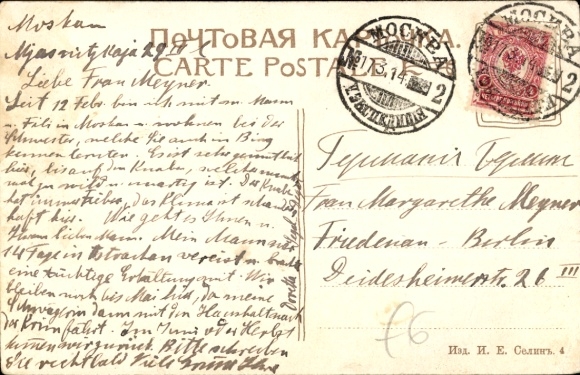 Moskau
Mjasnitzkaja 29
ПОЧТОВАЯ КАРТОЧКА.
CARTE POSTALE
МОСКВА
17.3.14
2
МОСКВА
2
Liebe Frau Meyner.
Seit 12 Febr. bin ich mit m. Mann
in Moskau u. wohnen bei der
Schwester, welche Sie auch in
kennen lernten. Es ist sehr gemütlich
hier, bis auf den Knaben, welcher
mal zu wild u. unartig ist. Der Knabe
hat immer
haft hier. Wie geht es Ihnen u.
Ihrem lieben Mann. Mein Mann
14 Tage in Astrachan verreist u. brachte
eine tüchtige Erkältung mit. Wir
bleiben noch bis Mai hier, da meine
Schwägerin dann mit dem Haushalt nach
der Krim fährt. Im Juni oder Herbst
kommen wir zurück. Bitte schreiben
Sie recht bald Viele Grüsse Ihre
Германія Берлин
Frau Margarethe Meyner
Friedenau-Berlin
Deidesheimerstr. 26 III
Изд. И. Е. Селинъ. 4